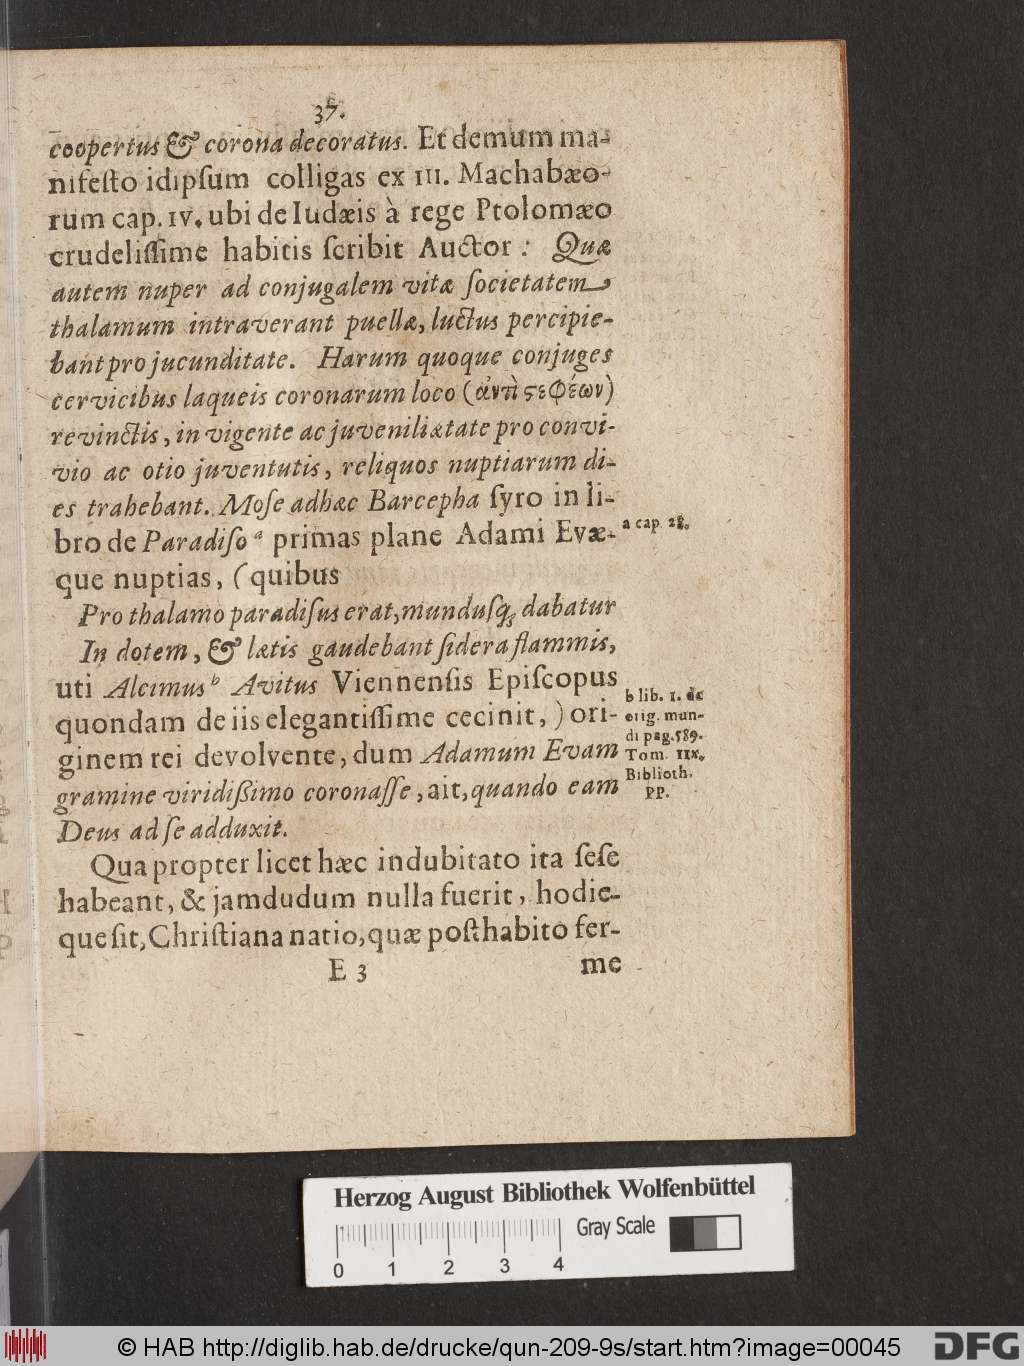 37.
coopertus & corona decoratus. Et demum ma-
nifesto idipſum colligas ex III. Machabæo-
rum cap. IV. ubi de Iudæis à rege Ptolomæo
crudeliſſime habitis ſcribit Auctor: Quæ
autem nuper ad conjugalem vitæ ſocietatem
thalamum intraverant puellæ, luctus percipie-
bant pro jucunditate. Harum quoque conjuges
cervicibus laqueis coronarum loco (ἀντὶ ϛεφέων)
revinctis, in vigente ac juvenili ætate pro convi-
vio ac otio juventutis, reliquos nuptiarum di-
es trahebant. Moſe adhæc Barcepha ſyro in li-
bro de Paradiſo a primas plane Adami Evæ-
que nuptias, (quibus
Pro thalamo paradiſus erat, munduſq́ꝫ dabatur
In dotem, & lætis gaudebant ſidera flammis,
uti Alcimus b Avitus Viennenſis Epiſcopus
quondam de iis elegantiſſime cecinit,) ori-
ginem rei devolvente, dum Adamum Evam
gramine viridißimo coronaſſe, ait, quando eam
Deus ad ſe adduxit.
Quapropter licet hæc indubitato ita ſeſe
habeant, & jamdudum nulla fuerit, hodie-
que ſit, Chriſtiana natio, quæ poſthabito fer-
E 3 me
a cap. 28.
b lib. 1. de
orig. mun-
di pag. 589.
Tom. IIX.
Biblioth.
PP.
Herzog August Bibliothek Wolfenbüttel
Gray Scale
0 1 2 3 4
© HAB http://diglib.hab.de/drucke/qun-209-9s/start.htm?image=00045
DFG